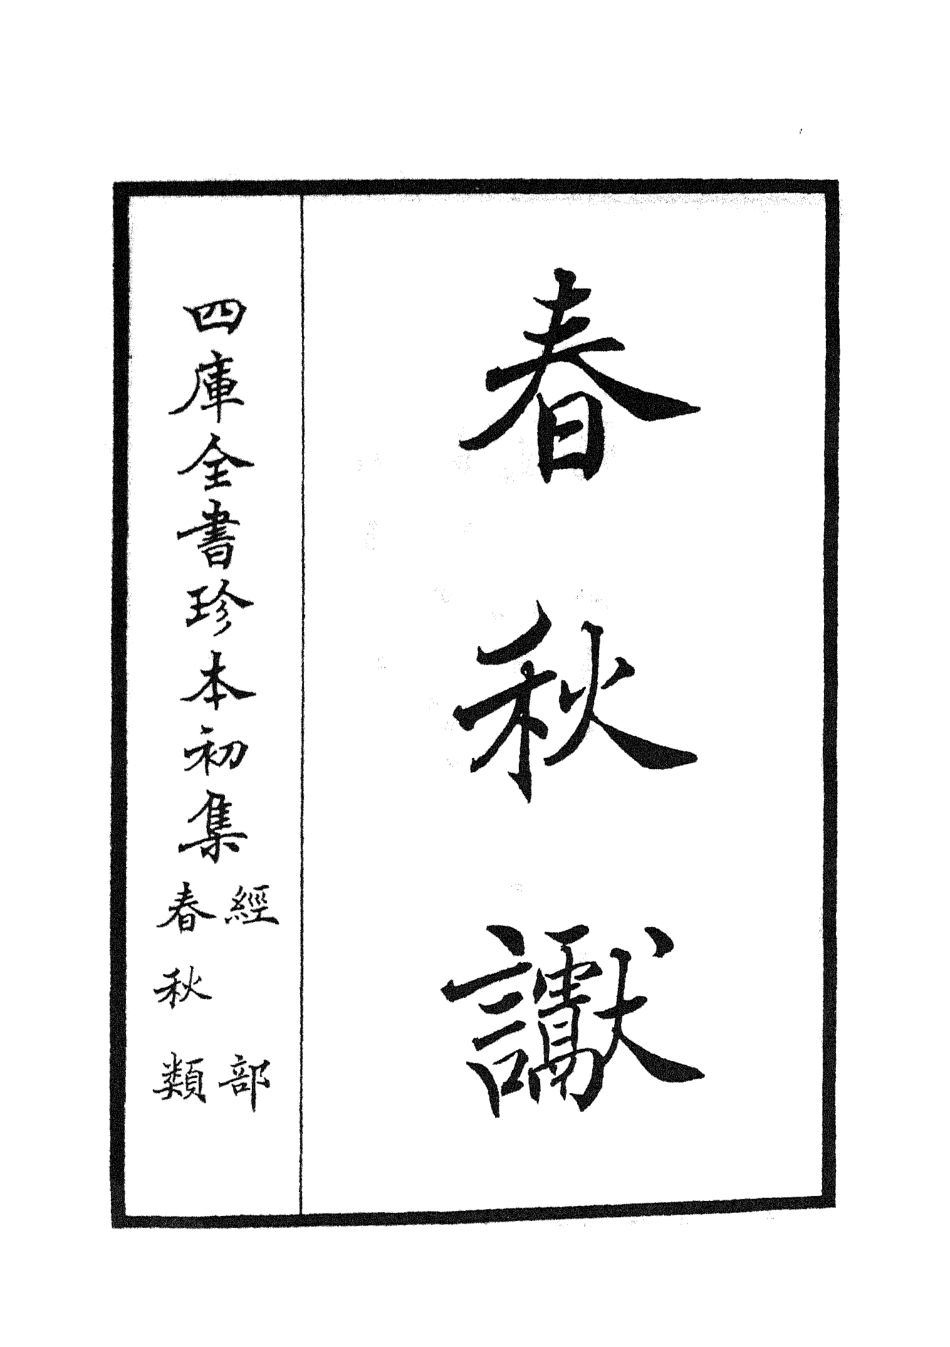 春秋讞
四庫全書珍本初集
經部
春秋類